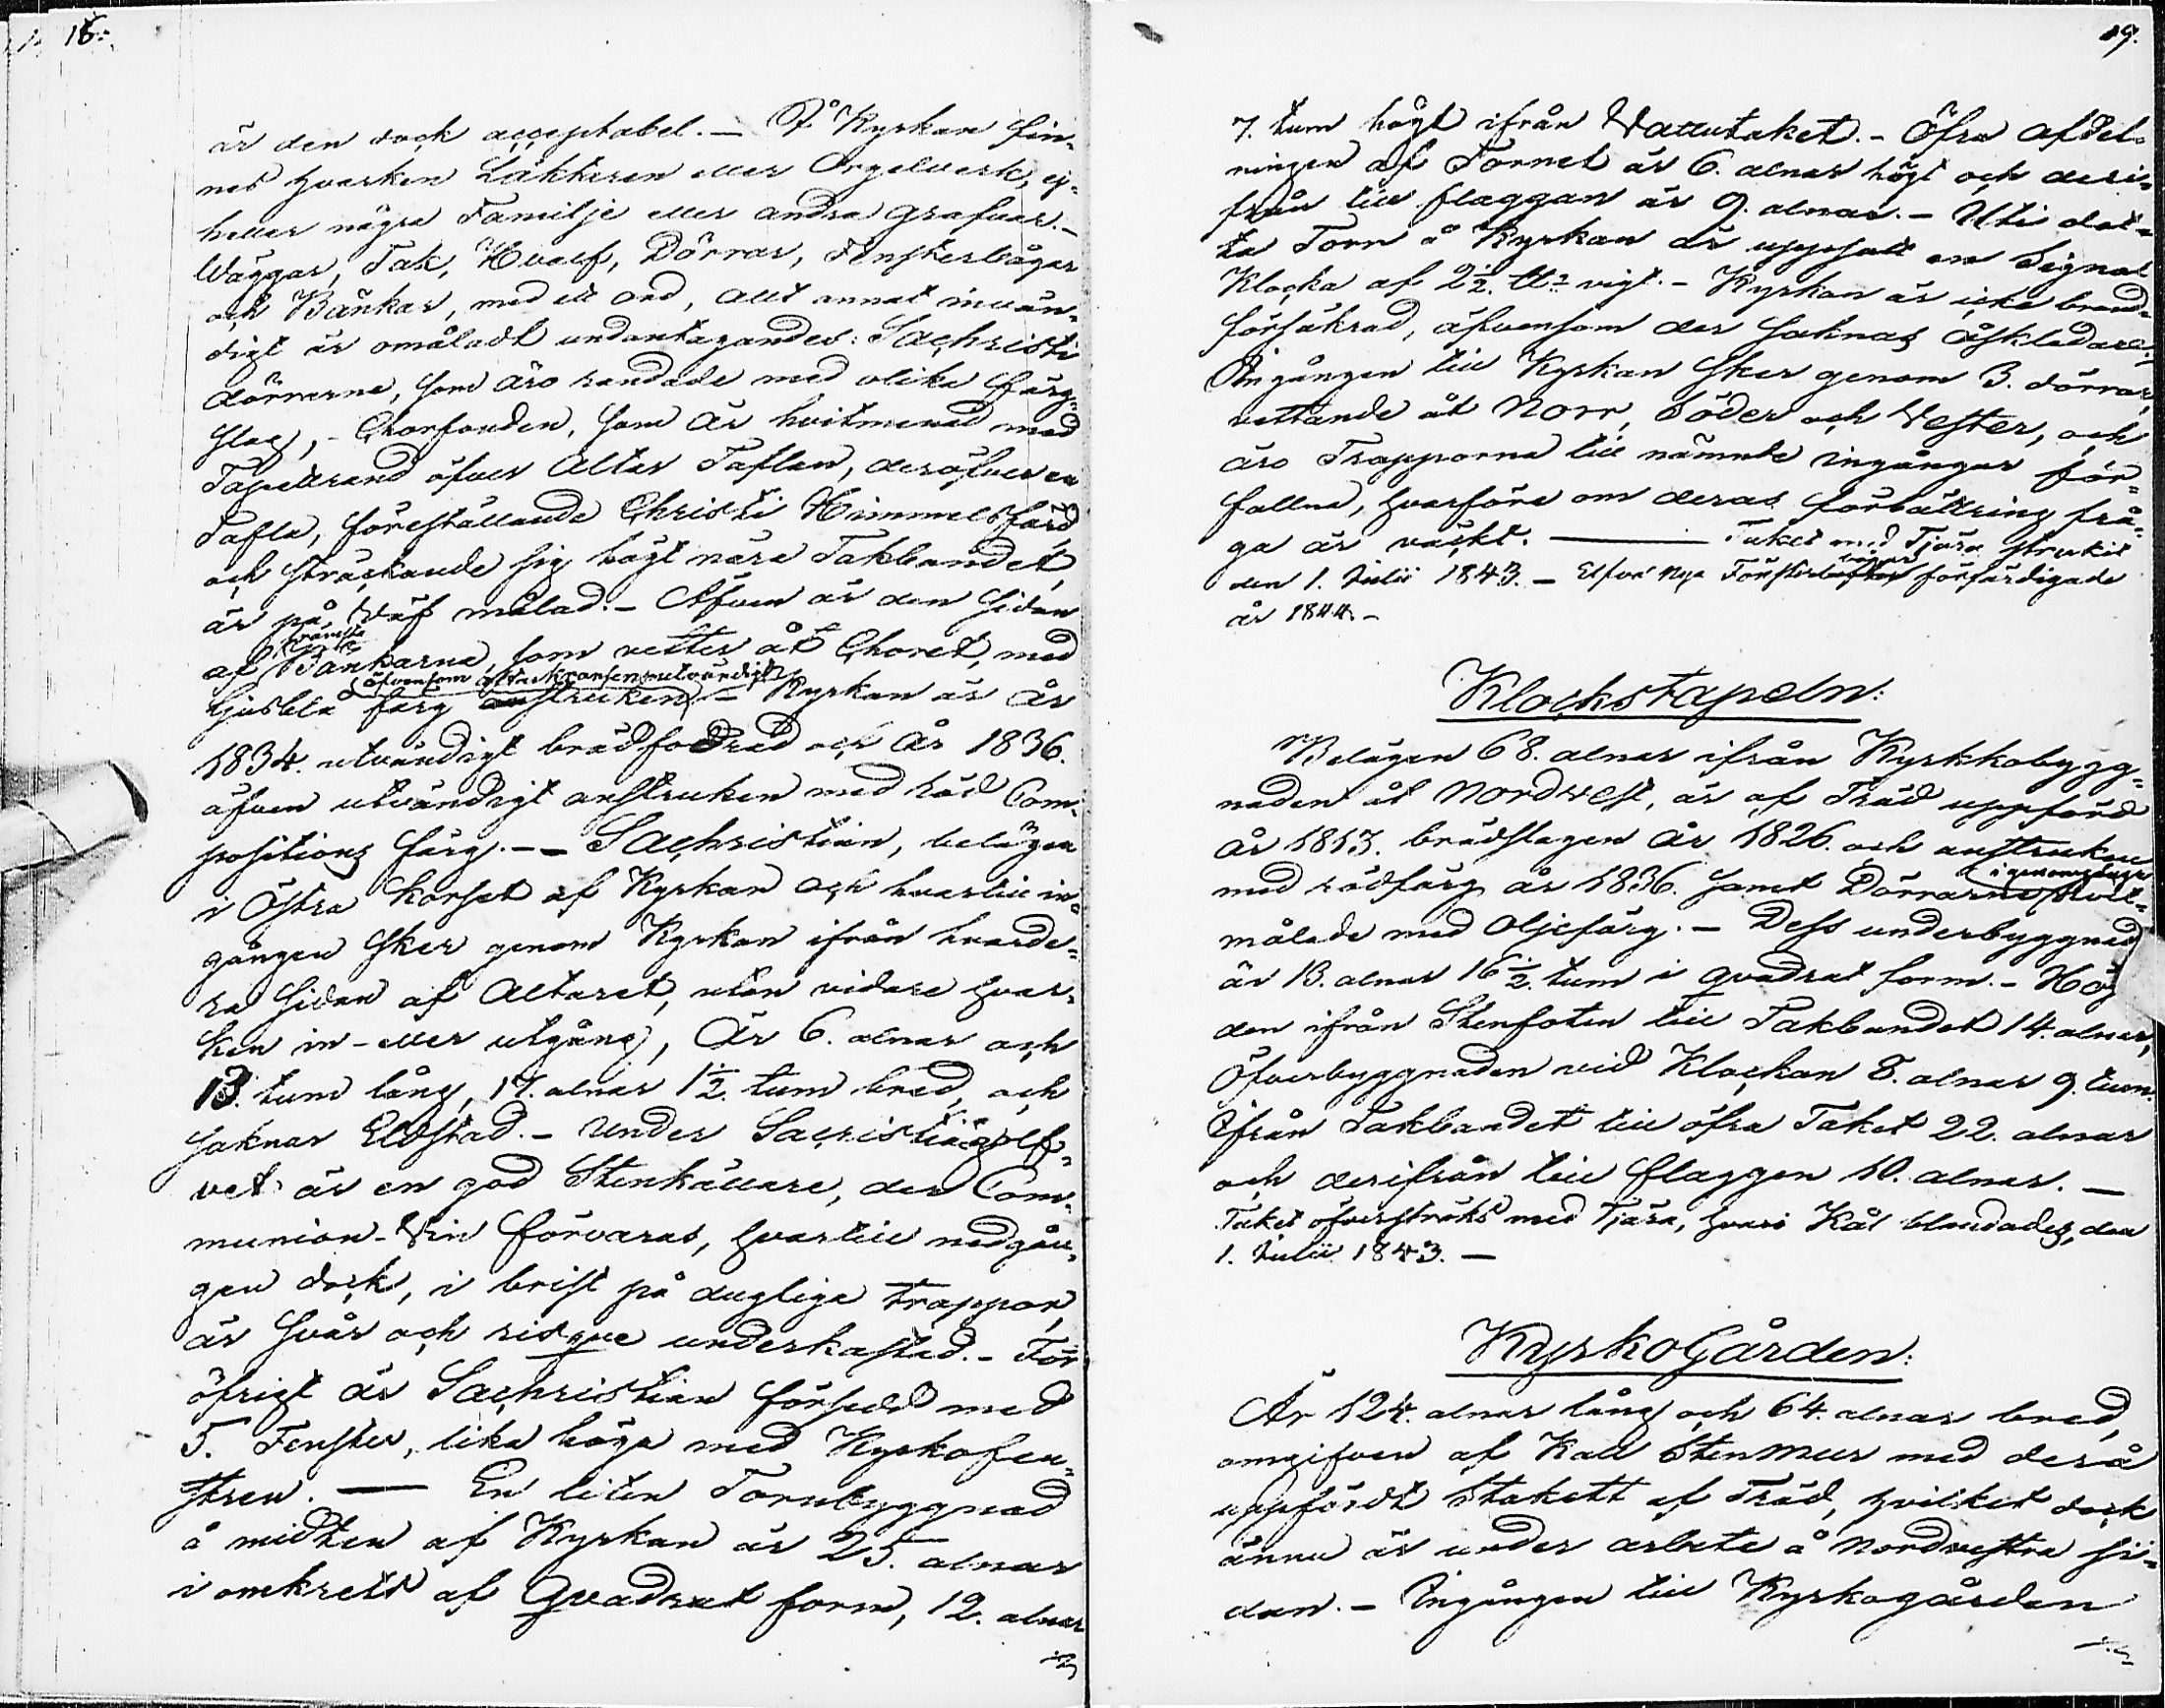 18.
är den dock acceptabel. — I Kyrkan fin-
nes hvarken Läktaren eller Orgelverk, ej-
heller några Familje eller andra grafvar. —
Väggar, Tak, Hvalf, Dörrar, Fensterbågar
och Bänkar, med ett ord, allt annat invän-
digt är omåladt undantagandes: Sachristi
dörrarne, som äro randade med olika färg-
slag, — Chorfonden, som är hvitmenad med
Tapetrand öfver Altar Taflan, deröfver en
Tafla, föreställande Christi Himmelsfärd
och sträckande sig högt nära Takbandet,
är på Väf målad. — Äfven är den sidan
af främsta Bänkarne, som vetter åt Choret, med
ljusblå färg struken (äfvensom altarkransen utvändigt) — Kyrkan är År
1834. utvändigt brädfodrad och År 1836.
äfven utvändigt anstruken med röd Com-
positions färg. — — Sachristian, belägen
i Östra korset af Kyrkan och hvartill in-
gången sker genom Kyrkan ifrån hvarde-
ra sidan af Altaret, utan vidare hvar-
ken in- eller utgång, Är 6. alnar och
13. tum lång, 17. alnar 1½. tum bred, och
saknar Eldstad. — Under Sacristiegolf-
vet är en god Stenkällare, der Com-
munion-Vin förvaras, hvartill nedgån-
gen dock, i brist på dugliga trappor,
är svår och risque underkastad. — För
öfrigt är Sachristian försedd med
5. Fenster, lika höga med Kyrkofen-
stren. — En liten Tornbyggnad
å midten af Kyrkan är 25. alnar
i omkrets af Qvadrat form, 12. alnar
19.
7. tum högt ifrån Vattutaket. — Öfra afdel-
ningen af Tornet är 6. alnar högt och deri-
från till flaggan är 9. alnar. — Uti det-
ta Torn å Kyrkan är uppsatt en Signal
Klocka af 2½. vigt. — Kyrkan är icke brand-
försäkrad, äfvensom der saknas åskledare.
Ingången till Kyrkan sker genom 3. dörrar,
vettande åt Norr, Söder och Vester, och
äro Trapporna till nämnde ingångar för-
fallna, hvarföre om deras förbättring frå-
ga är väckt. — Taket med Tjära strukit
den 1. Julii 1843. — Elfva nya Fönsterbågar förfärdigade
år 1844. —
Klockstapeln:
Belägen 68. alnar ifrån Kyrkkobygg-
naden åt Nordvest, är af Träd uppförd
År 1813. brädslagen År 1826. och anstruken
med rödfärg år 1836. samt Dörrarne i genomgången
målade med Oljefärg. — Dess underbyggnad
är 13. alnar 16½. tum i qvadrat form. — Höj
den ifrån Stenfoten till Takbandet 14. alnar,
Öfverbyggnaden vid Klockan 8. alnar 9. tum.
Ifrån Takbandet till öfra Taket 22. alnar
och derifrån till flaggen 10. alnar. —
Taket öfverströks med Tjära, hvari Kål blandades, den
1. Julii 1843. —
KyrkoGården:
Är 124. alnar lång och 64. alnar bred,
omgifven af Kall Stenmur med derå
uppfördt Stakett af Träd, hvilket dock
ännu är under arbete å Nordvestra si-
dan. — Ingången till Kyrkogården